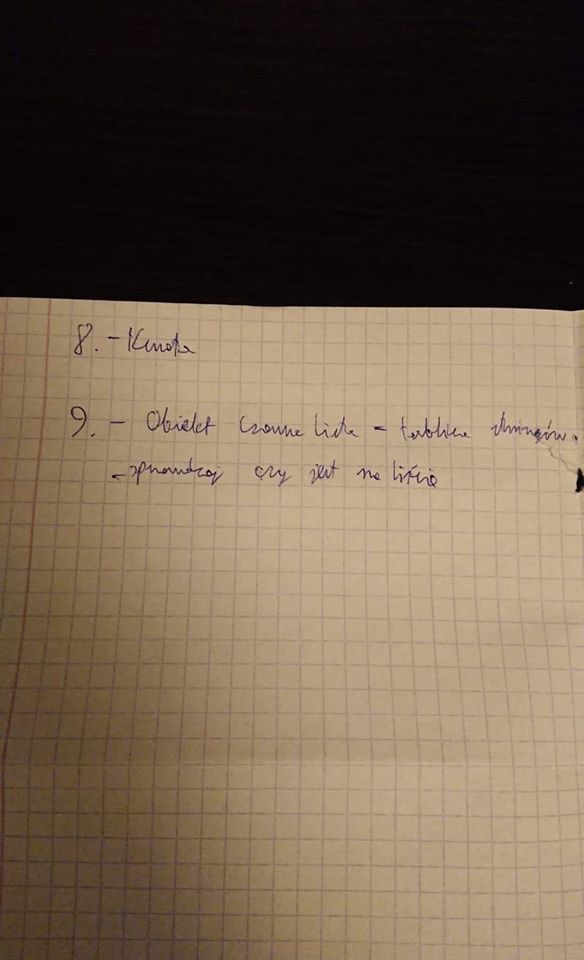 8. - Kwota
9. - Obiekt Czarna Lista = tablica stringów.
- sprawdzaj czy jest na liście